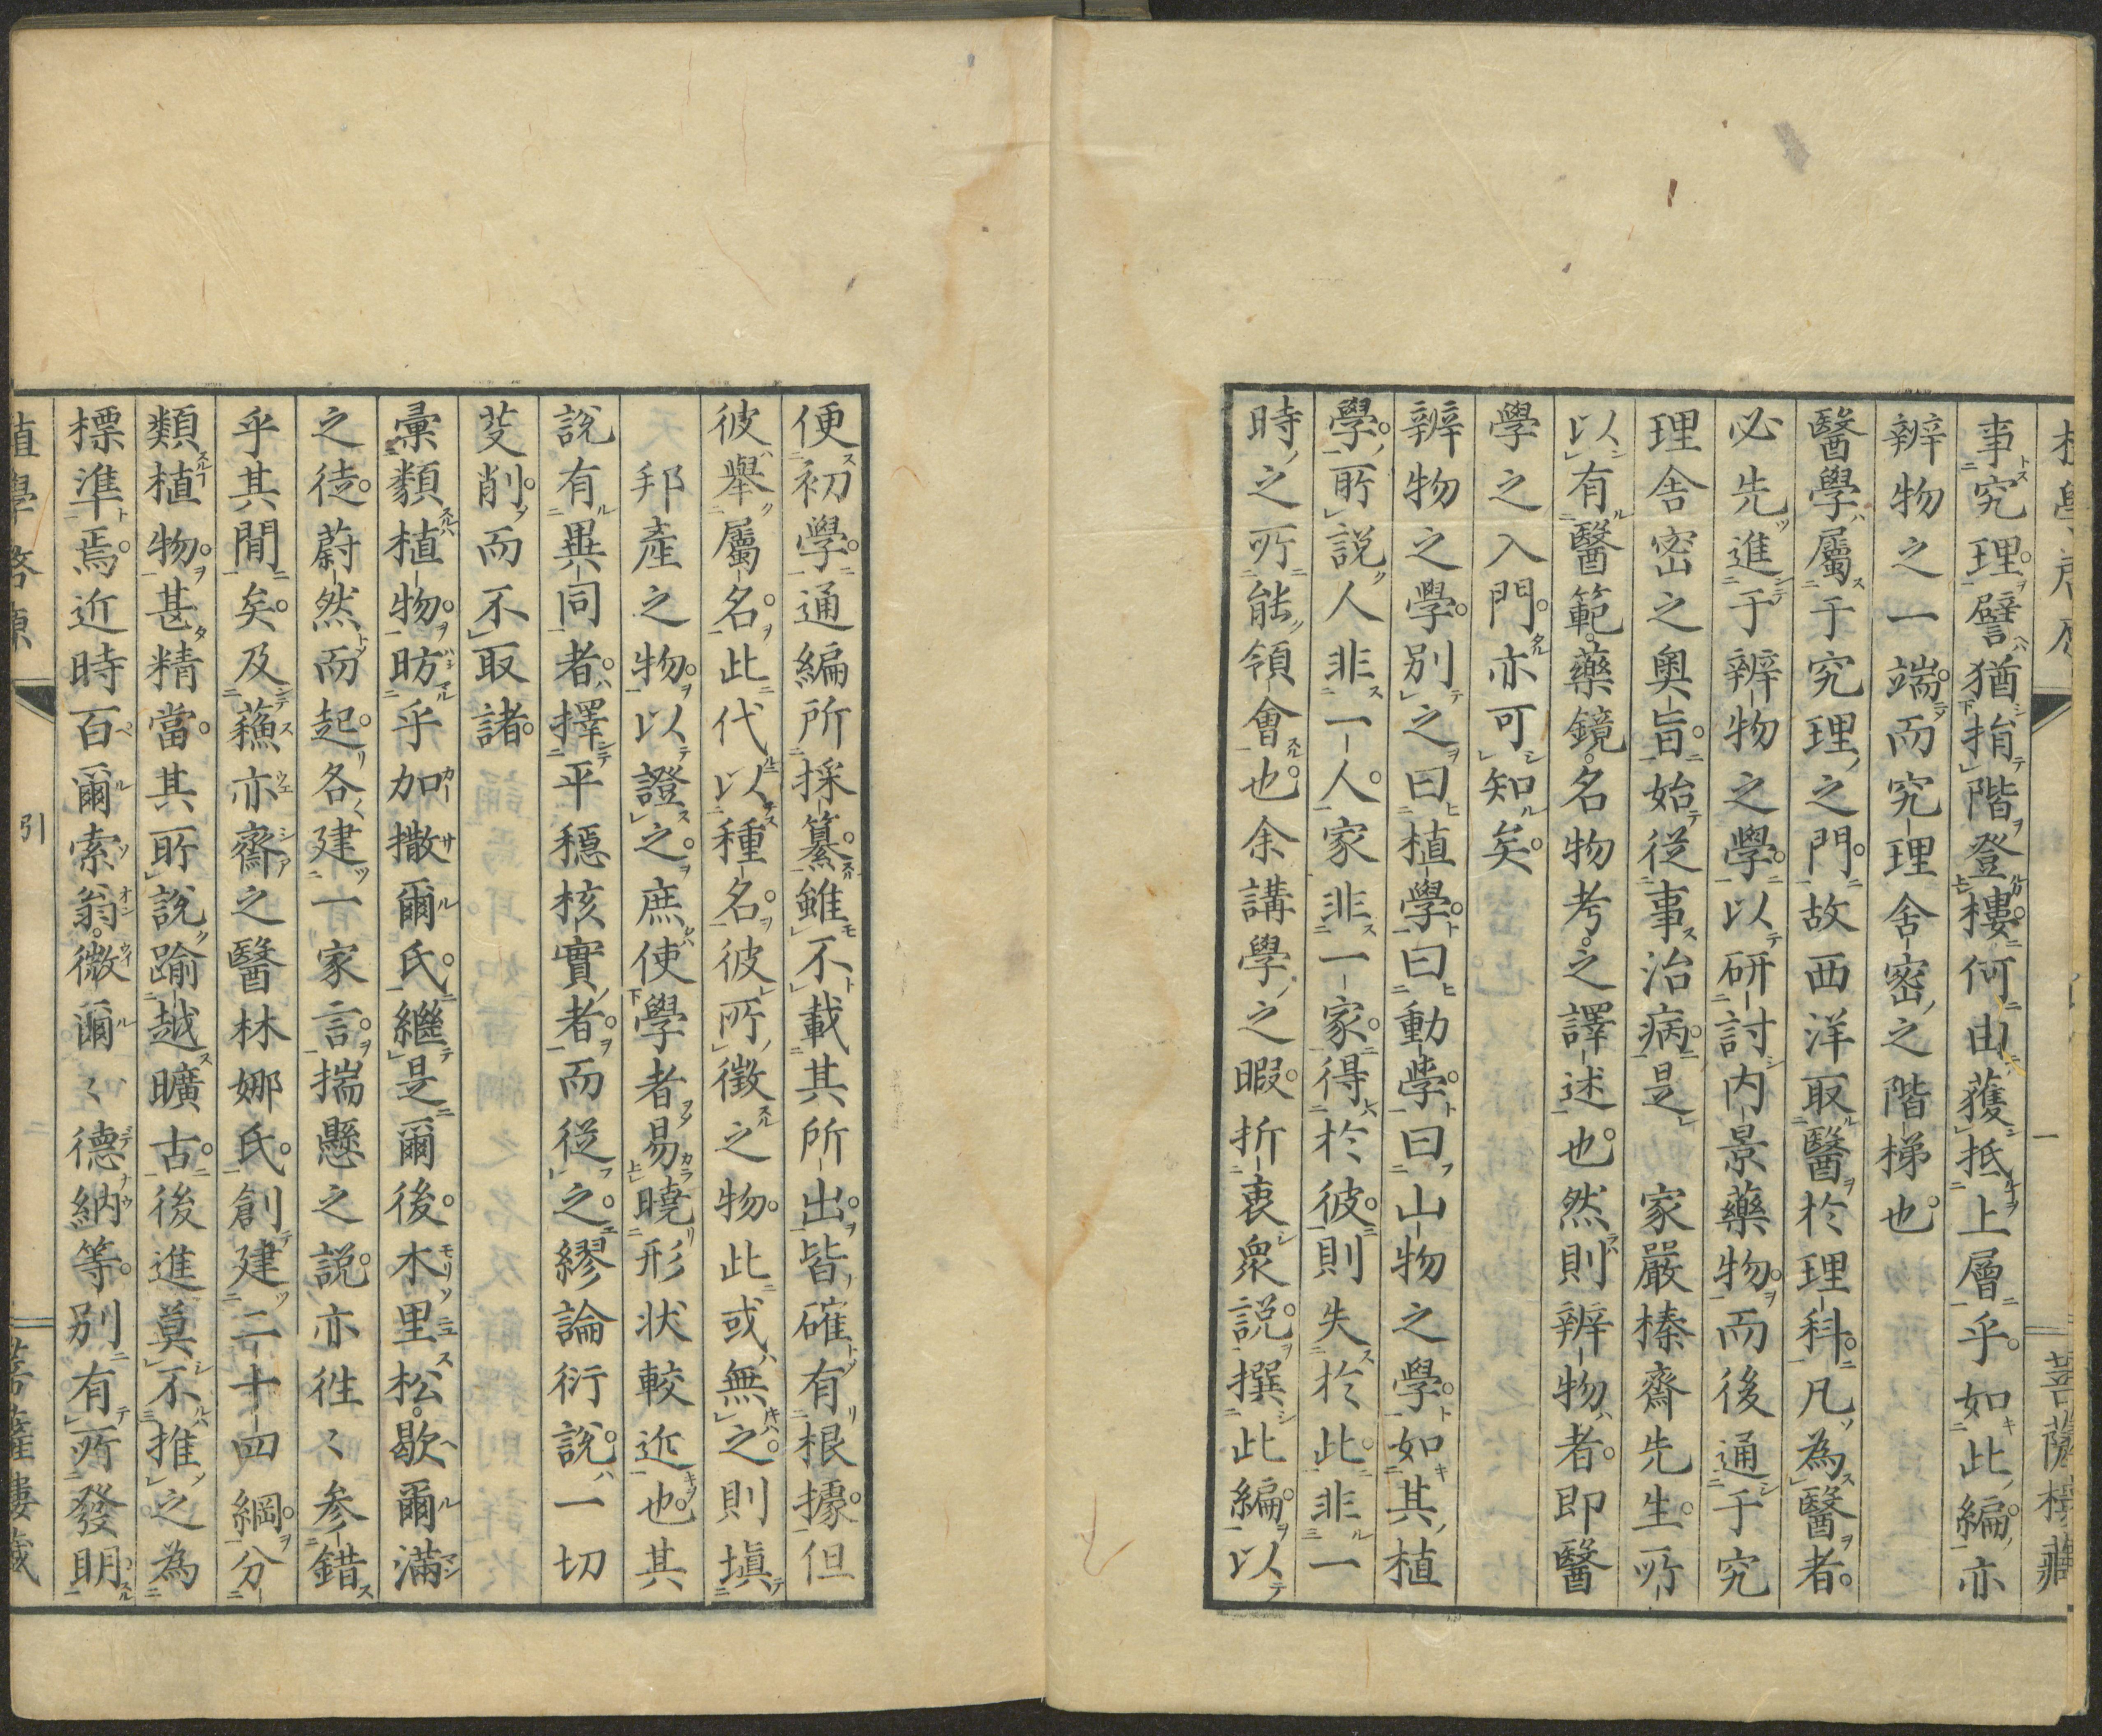 事究理。譬猶揹階登樓。何由獲抵上層乎。如此編。亦
辨物之一端。而究理舍密之階梯也。
醫學屬于究理之門。故西洋取醫於理科。凡為醫者。
必先進于辨物之學。以研討内景藥物。而後通于究
理舍密之奧旨。始從事治病。是 家嚴榛齋先生所
以有醫範。藥鏡。名物考。之譯述也。然則辨物者。即醫
學之入門。亦可知矣。
辨物之學。別之曰植學。曰動學。曰山物之學。如其植
學。所說人非一人。家非一家。得於彼。則失於此。非一
時之所能領會也。余講學之暇。折衷衆説。撰此編。以
便初學。通編所採纂。雖不載其所出。皆確有根據。但
彼舉屬名。此代以種名。彼所徵之物。此或無之。則塡
邦產之物。以證之。庶使學者易曉形状較近也。其
說有異同者。擇平穩核實者。而從之。繆論衍説。一切
芟削。而不取諸。
彙類植物。昉乎加撒爾氏。繼是爾後。木里松。歇爾滿
之徒。蔚然而起。各建一家言。揣懸之説。亦徃〻參錯
乎其間矣。及蘓亦齋之醫林娜氏。創建二十四綱。分
類植物。甚精當。其所說踰越曠古。後進莫不推之為
標準焉。近時百爾索翁。微爾〻德納等。別有所發明
植學啓原
引
菩薩樓藏